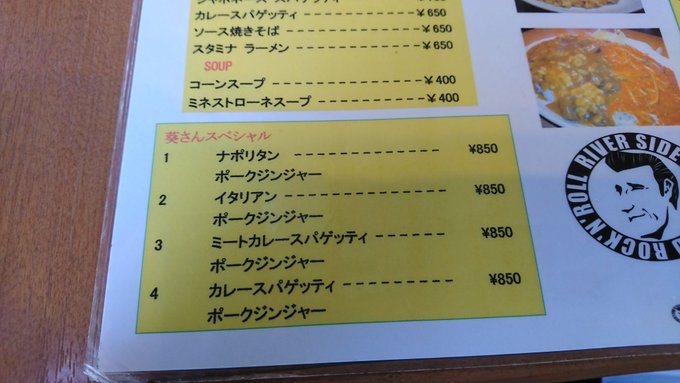 ジャポネーズ スパゲッティ
カレースパゲッティ ------------ ¥650
ソース焼きそば --------------- ¥650
スタミナ ラーメン -------------- ¥650
SOUP
コーンスープ ---------------- ¥400
ミネストローネスープ ------------ ¥400
葵さんスペシャル
1 ナポリタン -------------- ¥850
ポークジンジャー
2 イタリアン -------------- ¥850
ポークジンジャー
3 ミートカレースパゲッティ -------- ¥850
ポークジンジャー
4 カレースパゲッティ ----------- ¥850
ポークジンジャー
ROCK'N'ROLL RIVER SIDE